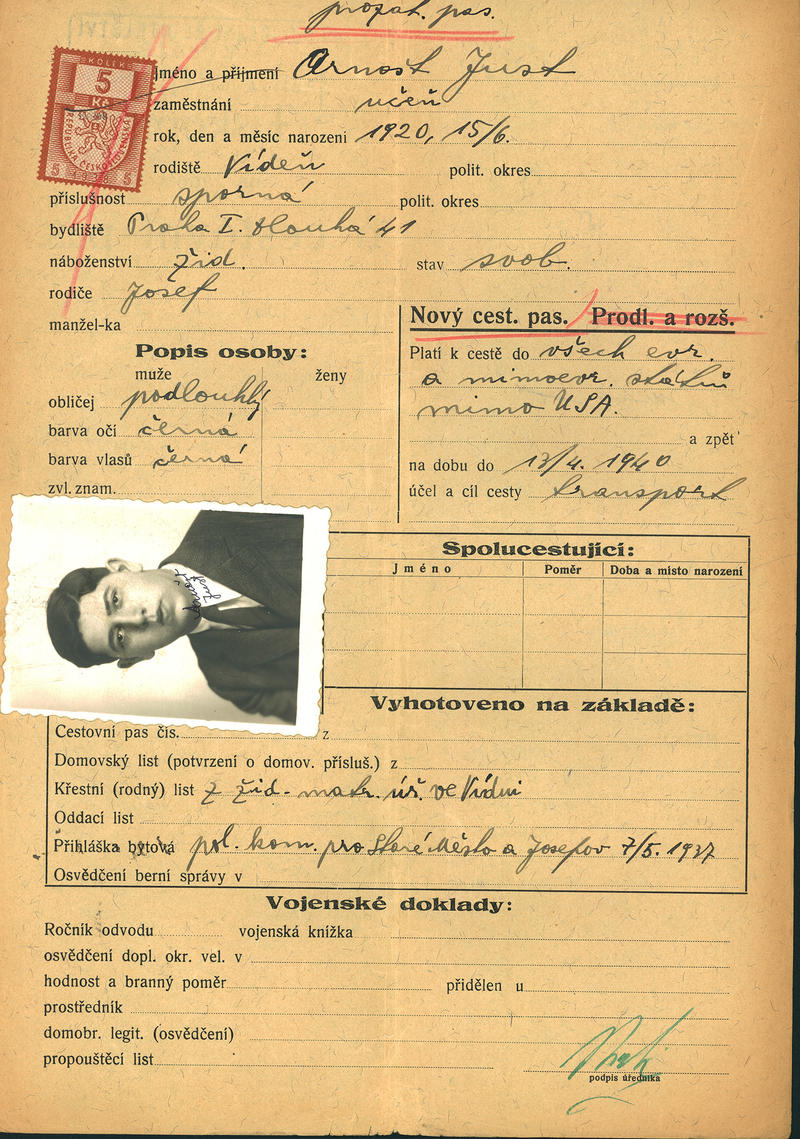 prozat. pas.
KOLEK
5
Kč
REPUBLIKA ČESKOSLOVENSKÁ
5 1938 5
Jméno a příjmení Arnošt Just
zaměstnání učeň
rok, den a měsíc narození 1920, 15/6.
rodiště Vídeň polit. okres
příslušnost sporná polit. okres
bydliště Praha I. Dlouhá 41
náboženství žid. stav svob.
rodiče Josef
manžel-ka
Popis osoby:
muže ženy
obličej podlouhlý
barva očí černá
barva vlasů černá
zvl. znam.
Nový cest. pas. Prodl. a rozš.
Platí k cestě do všech evr.
a mimoevr. států
mimo USA.
a zpět
na dobu do 13/4. 1940
účel a cíl cesty transport
Arnošt
Just
Spolucestující:
Jméno Poměr Doba a místo narození
Vyhotoveno na základě:
Cestovní pas čís. z
Domovský list (potvrzení o domov. přísluš.) z
Křestní (rodný) list z žid. matr. úř. ve Vídni
Oddací list
Přihláška bytová pol. kom. pro Staré Město a Josefov 7/5. 1937
Osvědčení berní správy v
Vojenské doklady:
Ročník odvodu vojenská knížka
osvědčení dopl. okr. vel. v
hodnost a branný poměr přidělen u
prostředník
domobr. legit. (osvědčení)
propouštěcí list
podpis úředníka